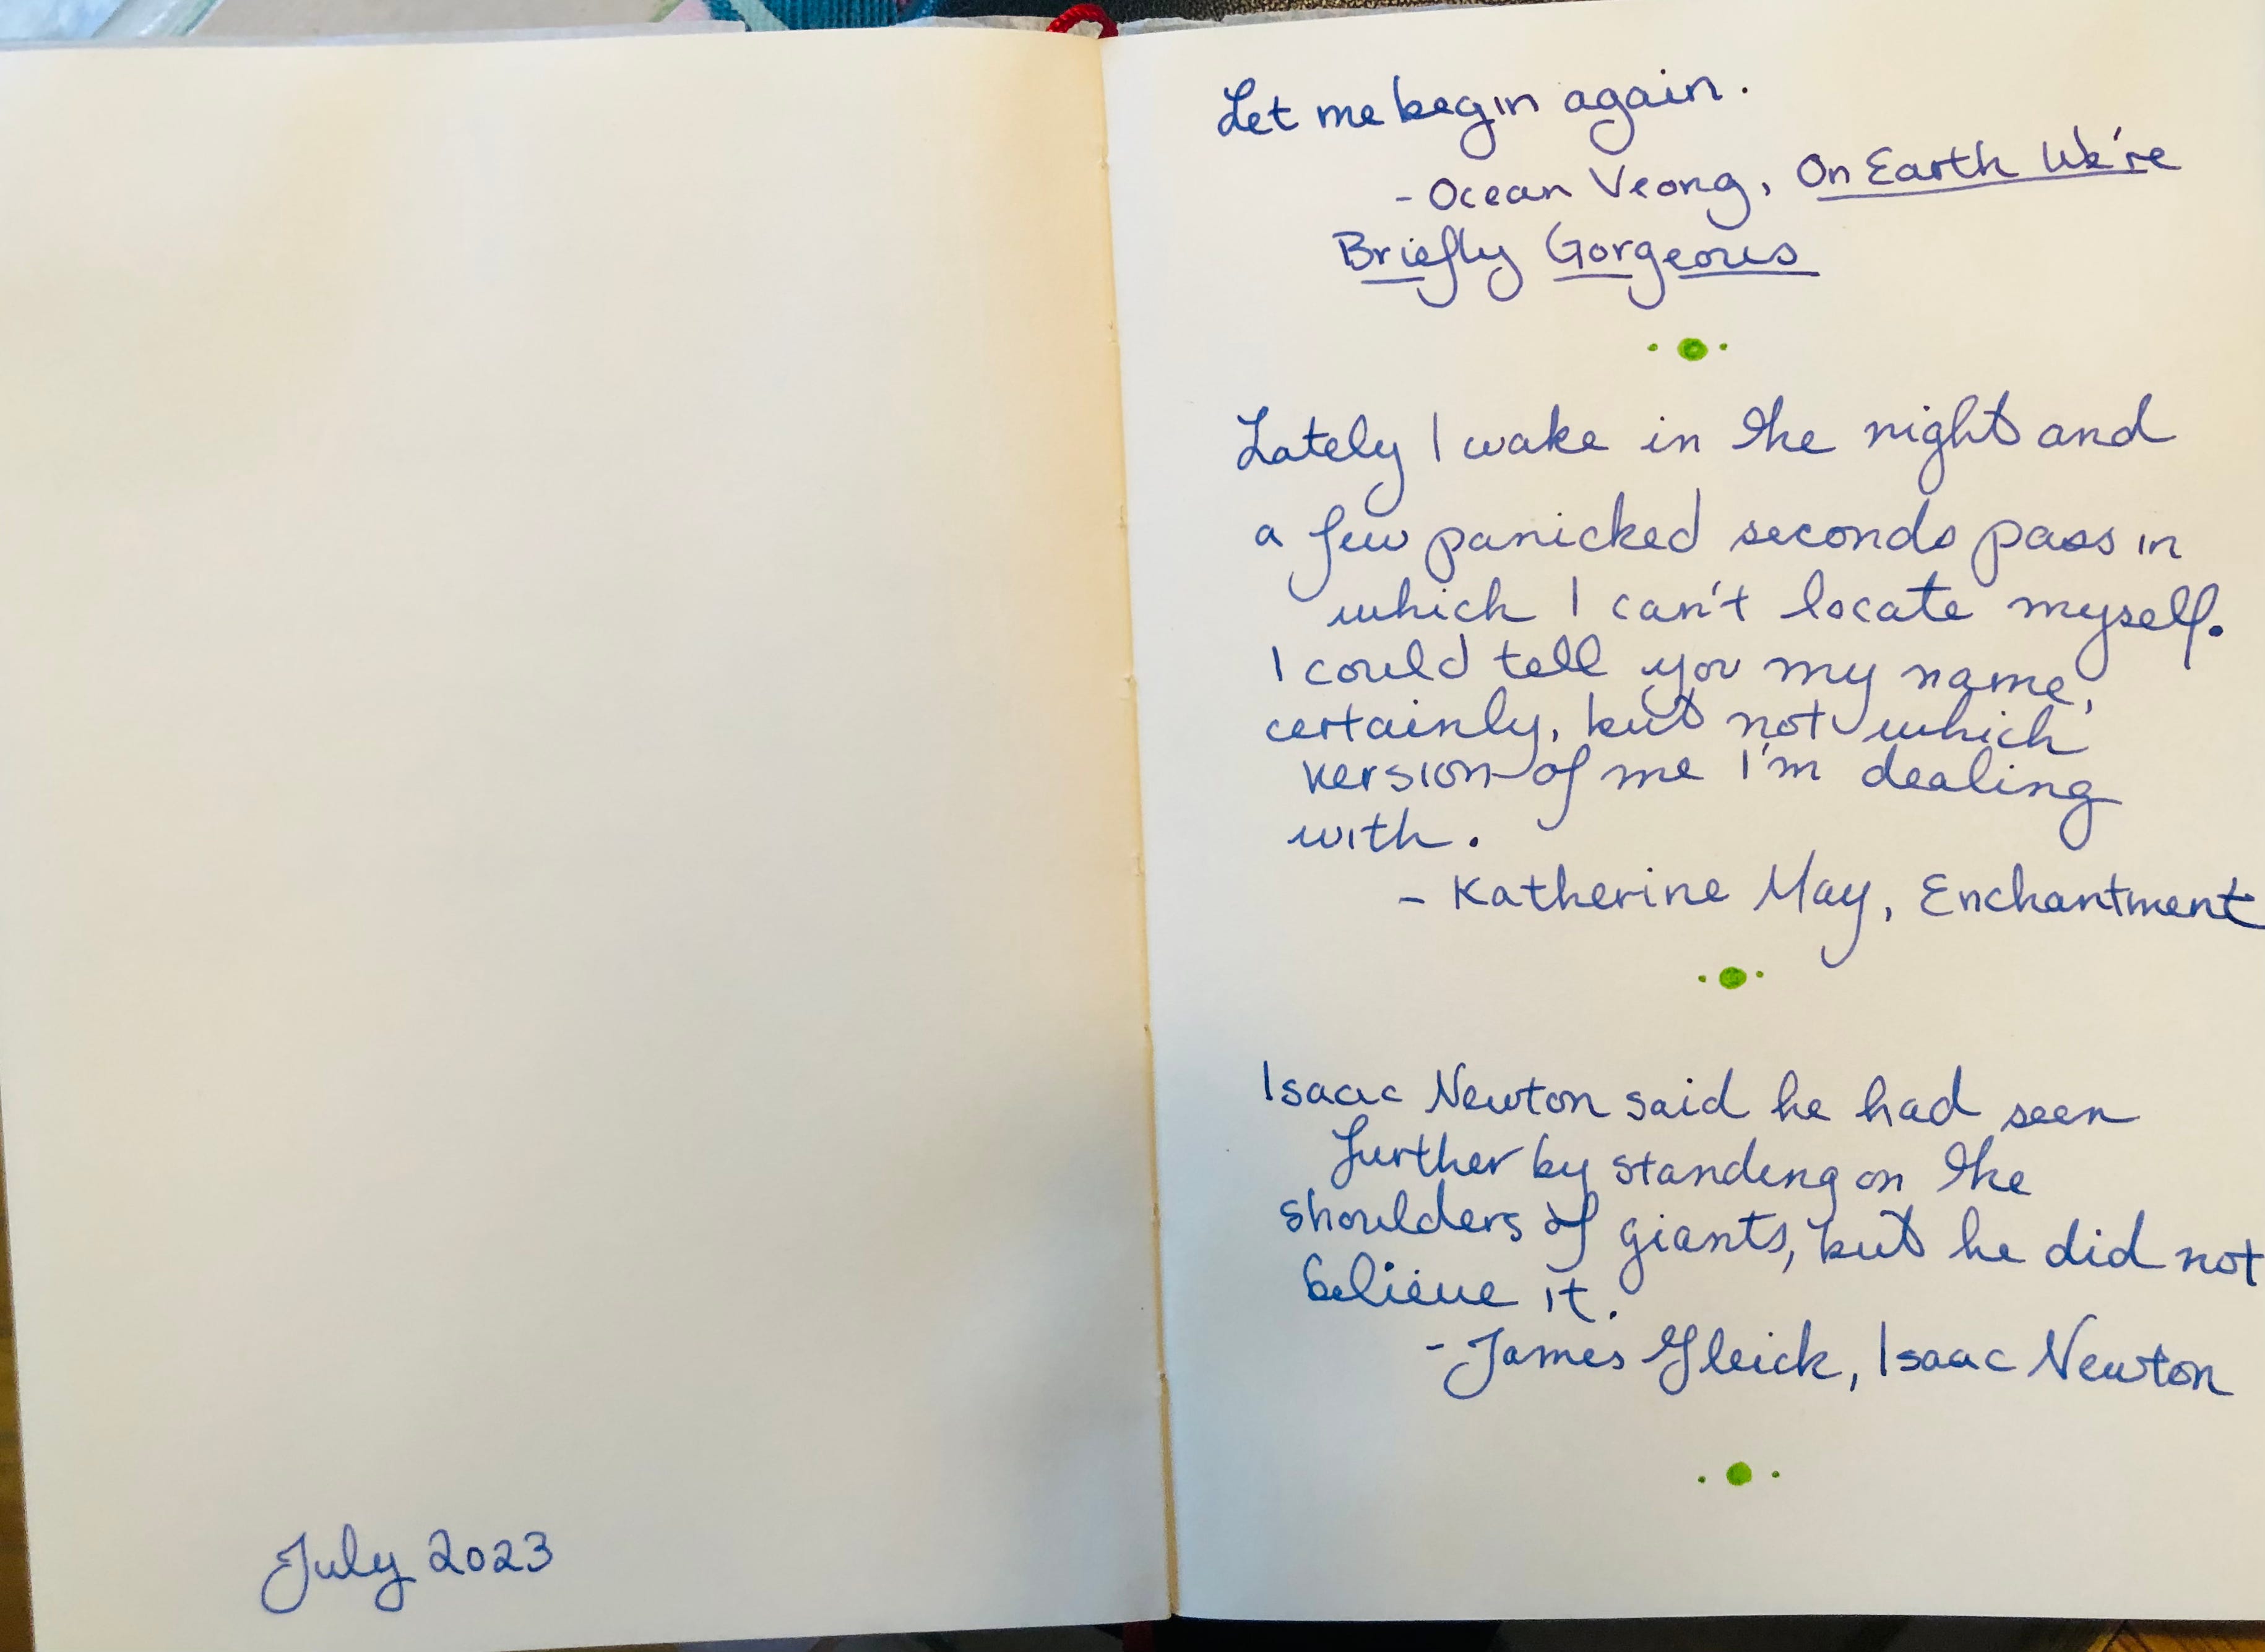 July 2023
Let me begin again.
- Ocean Veong, On Earth We're
Briefly Gorgeous
Lately I wake in the night and
a few panicked seconds pass in
which I can't locate myself.
I could tell you my name,
certainly, but not which
version of me I'm dealing
with.
- Katherine May, Enchantment
Isaac Newton said he had seen
further by standing on the
shoulders of giants, but he did not
believe it.
- James Gleick, Isaac Newton